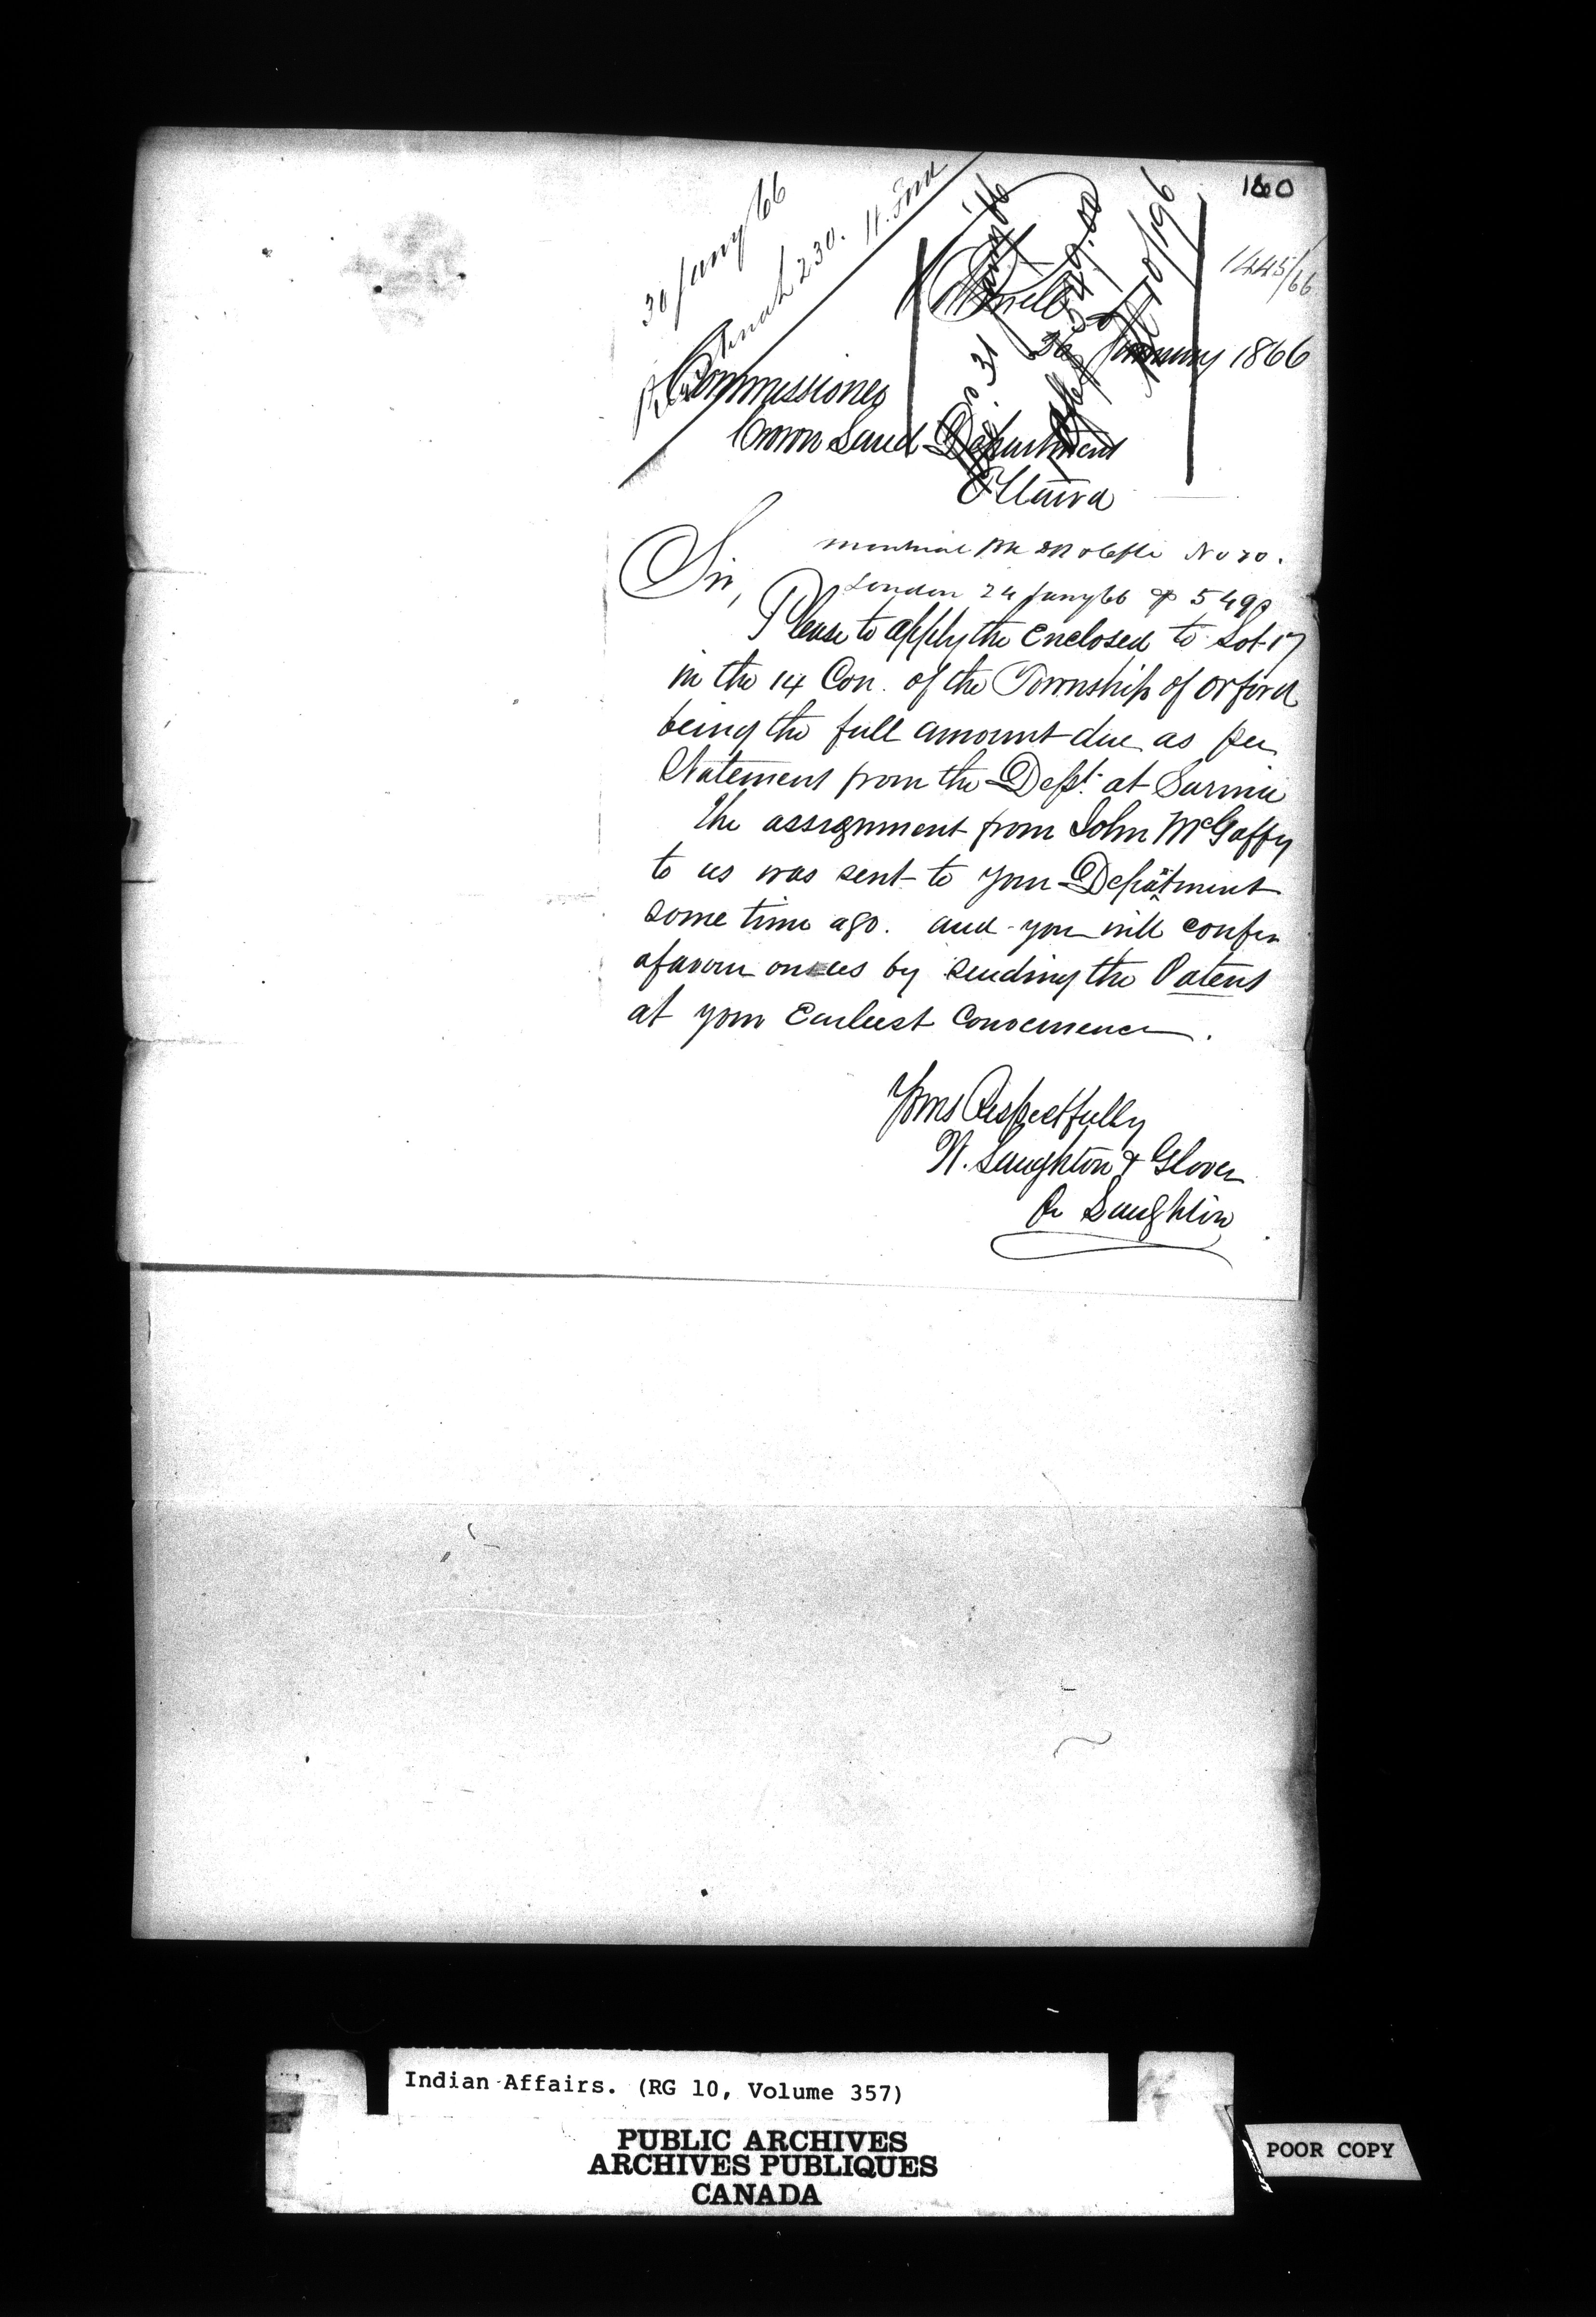 160
1445/66
30 Jany 66
January 1866
Commissioner
Crown Land Department
Ottawa
Sir,
No 20.
London 24 Jany 66 $ 549
Please to apply the Enclosed to Lot 17
in the 14 Con. of the Township of Orford
being the full amount due as per
Statement from the Dept. at Sarnia
The assignment from John McGaffy
to us was sent to your Department
some time ago. and you will confer
a favour on us by sending the Patent
at your Earliest Convenience.
Yours Respectfully
W. Laughton & Glover
Laughton
Indian Affairs. (RG 10, Volume 357)
PUBLIC ARCHIVES
ARCHIVES PUBLIQUES
CANADA
POOR COPY